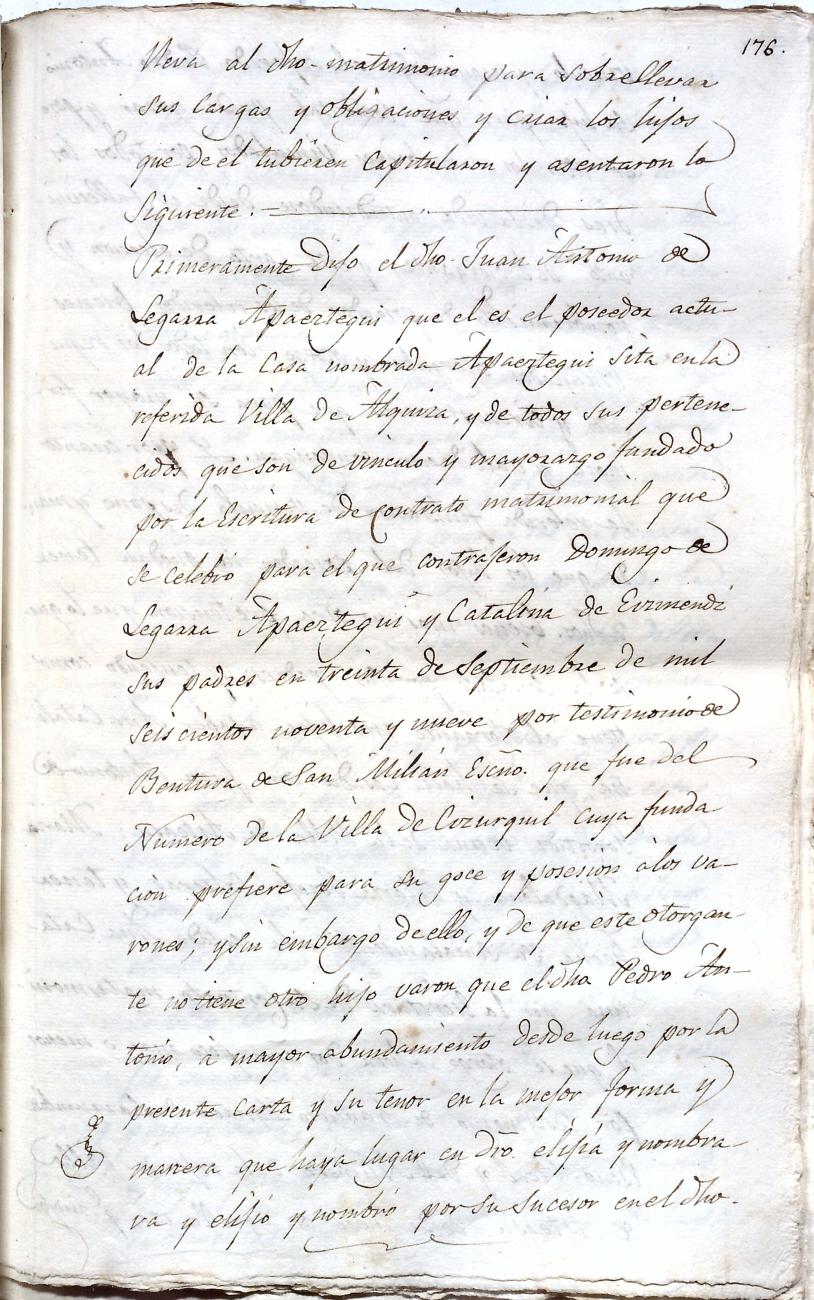 176.
lleva al dho matrimonio para sobrellevar
sus cargas y obligaciones y criar los hijos
que de el tubieren capitularon y asentaron lo
siguiente.
Primeramente dijo el dho Juan Antonio de
Legarra Apaeztegui que el es el poseedor actu-
al de la Casa nombrada Apaeztegui sita en la
referida Villa de Alquiza, y de todos sus pertene-
cidos que son de vinculo y mayorazgo fundado
por la Escritura de contrato matrimonial que
se celebró para el que contrajeron Domingo de
Legarra Apaeztegui y Catalina de Eizmendi
sus padres en treinta de Septiembre de mil
seiscientos noventa y nueve por testimonio de
Bentura de San Milián Escño. que fue del
Numero de la Villa de Cizurquil cuya funda
cion prefiere para su goce y posesion á los va-
rones; y sin embargo de ello, y de que este otorgan-
te no tiene otro hijo varon que el dho Pedro An-
tonio, á mayor abundamiento desde luego por la
presente carta y su tenor en la mejor forma y
manera que haya lugar en dro. elijia y nombra-
va y elijio y nombró por su sucesor en el dho.